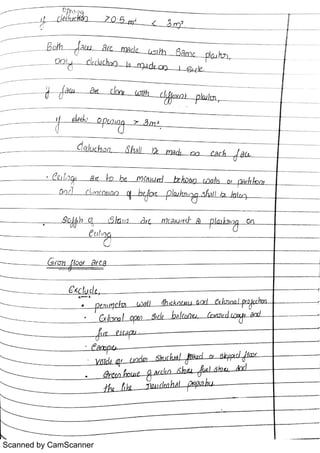 opening
if deduction > 0.5 m² < 3m²
Both faces are made with same plaster,
only deduction is made on 1 side
if faces are done with different plaster,
if opening > 3m²
deduction shall be made on each face
• Ceilings are to be measured between walls or partitions
and dimension before plastering shall be taken
• Soffit of stairs are measured as plastering on
ceiling
Gross floor area
Exclude,
• perimeter wall thickness and external projection
• External open side balconies covered ways and
fire escapes
• Canopies
• Voids or under structural floor
• Green house garden stores fuel stores and
the like residential
Scanned by CamScanner